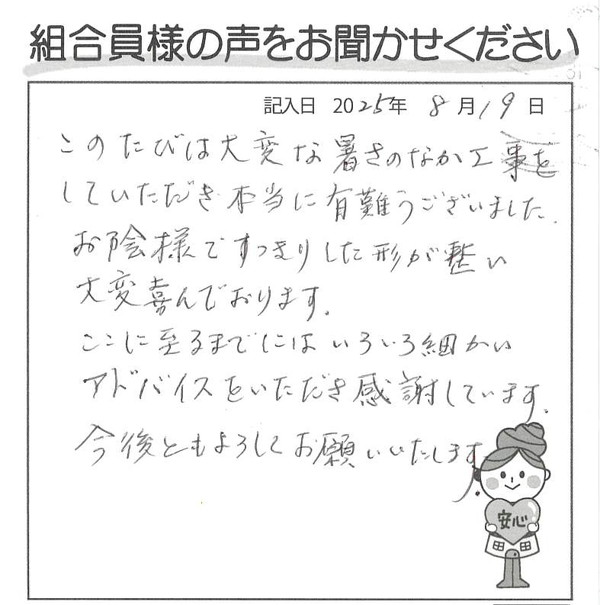 組合員様の声をお聞かせください
記入日 2025年 8月19日
このたびは大変な暑さのなか工事を
していただき本当に有難うございました.
お陰様ですっきりした形が整い
大変喜んでおります.
ここに至るまでにはいろいろ細かい
アドバイスをいただき感謝しています.
今後ともよろしくお願いいたします
安心